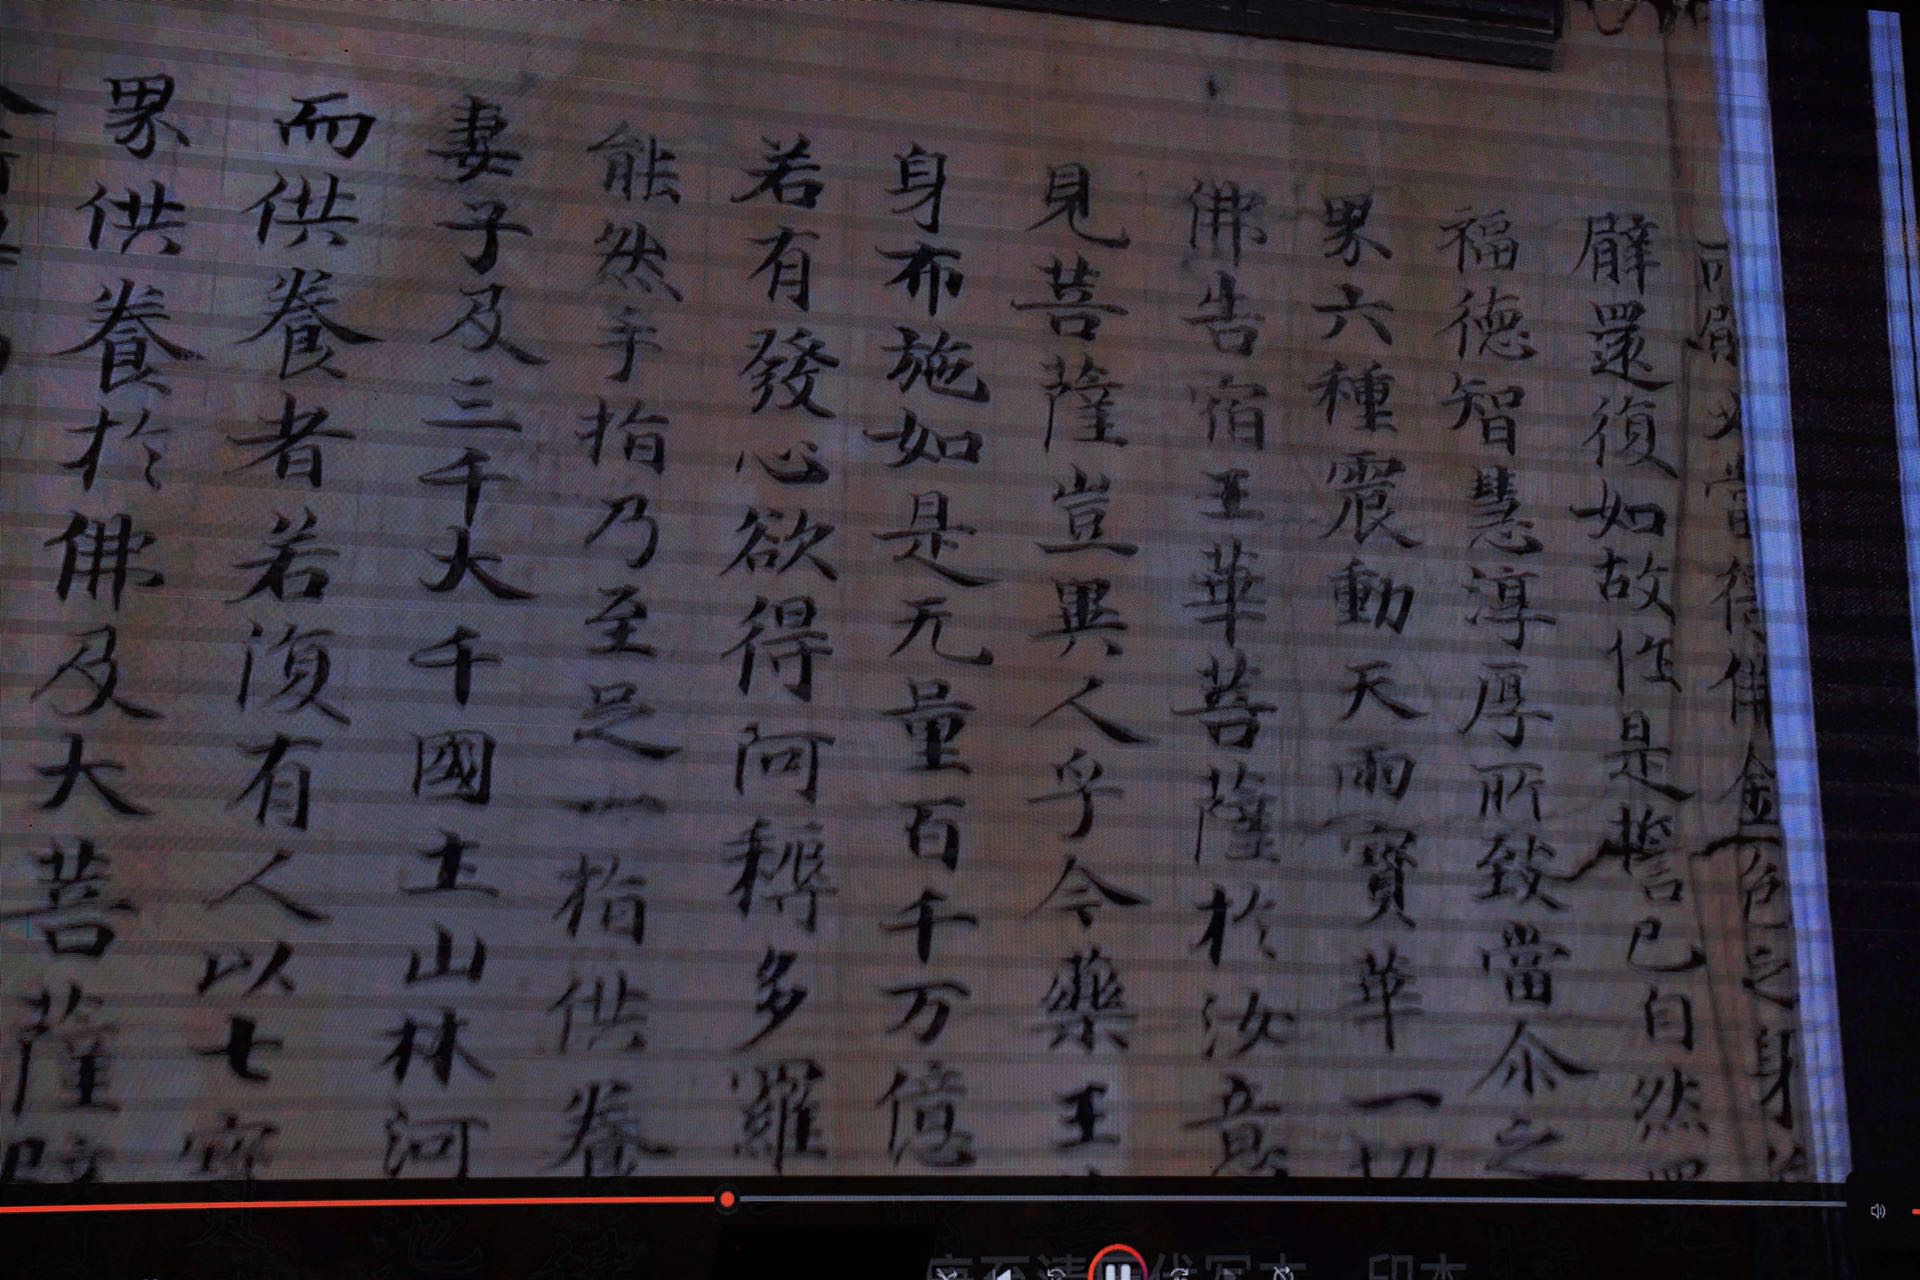 臂必當得佛金色之身
臂還復如故作是誓已自然
福德智慧淳厚所致當尒之
界六種震動天雨寶華一切
佛告宿王華菩薩於汝意
見菩薩豈異人乎今藥王
身布施如是无量百千万億
若有發心欲得阿耨多羅
能然手指乃至足一指供養
妻子及三千大千國土山林河
而供養者若湏有人以七寶
界供養於佛及大菩薩